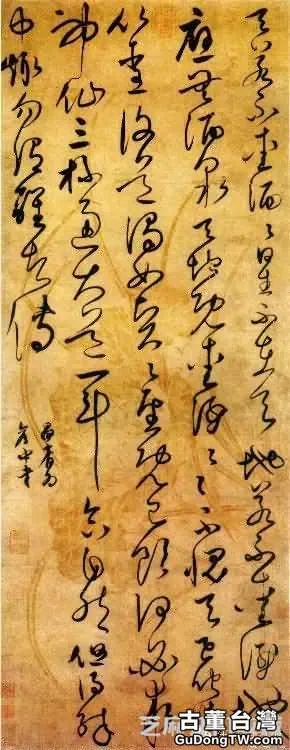 天若不愛酒〻星不在天地若不愛酒地
應無酒泉天地既愛酒〻〻不愧天已聞清
比聖復道濁如賢〻聖既已飲何必求
神仙三杯通大道一斗合自然但得醉
中趣勿謂醒者傳
古董台灣
GuDongTW.com